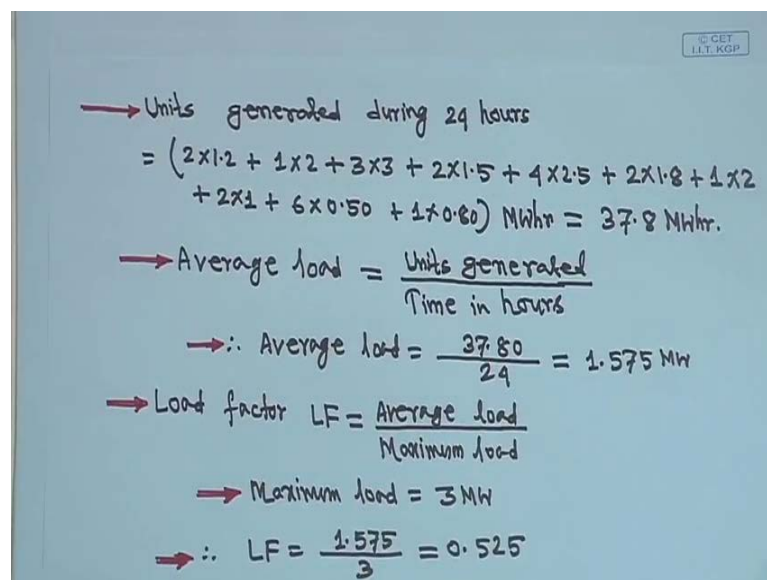 © CET
I.I.T. KGP
→ Units generated during 24 hours
= (2×1.2 + 1×2 + 3×3 + 2×1.5 + 4×2.5 + 2×1.8 + 1×2
+ 2×1 + 6×0.50 + 1×0.80) MWhr = 37.8 MWhr.
→ Average load = Units generated
Time in hours
→ ∴ Average load = 37.80 = 1.575 MW
24
→ Load factor LF = Average load
Maximum load
→ Maximum load = 3 MW
→ ∴ LF = 1.575 = 0.525
3